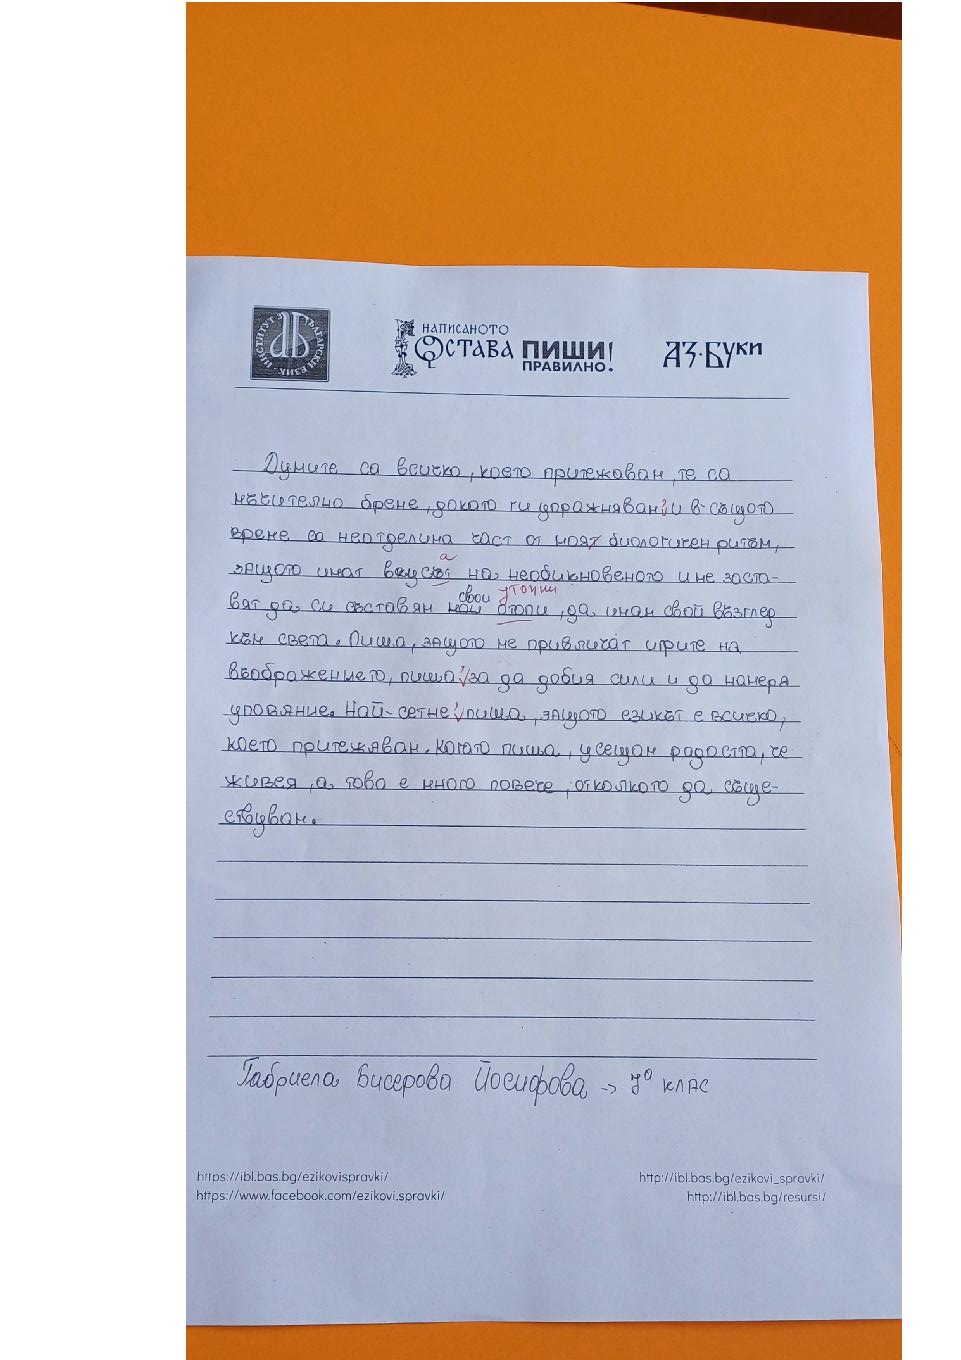 ИНСТИТУТ ЗА БЪЛГАРСКИ ЕЗИК
НАПИСАНОТО
ОСТАВА ПИШИ
ПРАВИЛНО!
АЗ·БУКИ
Думите са всичко, което притежавам, те са
мъчително бреме, докато ги упражнявам, и в същото
време са неотделима част от моят биологичен ритъм,
защото имат вкусът на необикновеното и ме заста-
а
вят да си съставям мой опопи, да имам свой възглед
свои утопии
към света. Пиша, защото ме привличат игрите на
въображението, пиша, за да добия сили и да намеря
упование. Най-сетне, пиша, защото езикът е всичко,
което притежавам. Когато пиша, усещам радостта, че
живея, а това е много повече, отколкото да съще-
ствувам.
Габриела Бисерова Йосифова -> 7а клас
https://ibl.bas.bg/ezikovispravki/
http://ibl.bas.bg/ezikovi_spravki/
https://www.facebook.com/ezikovi.spravki/
http://ibl.bas.bg/resursi/